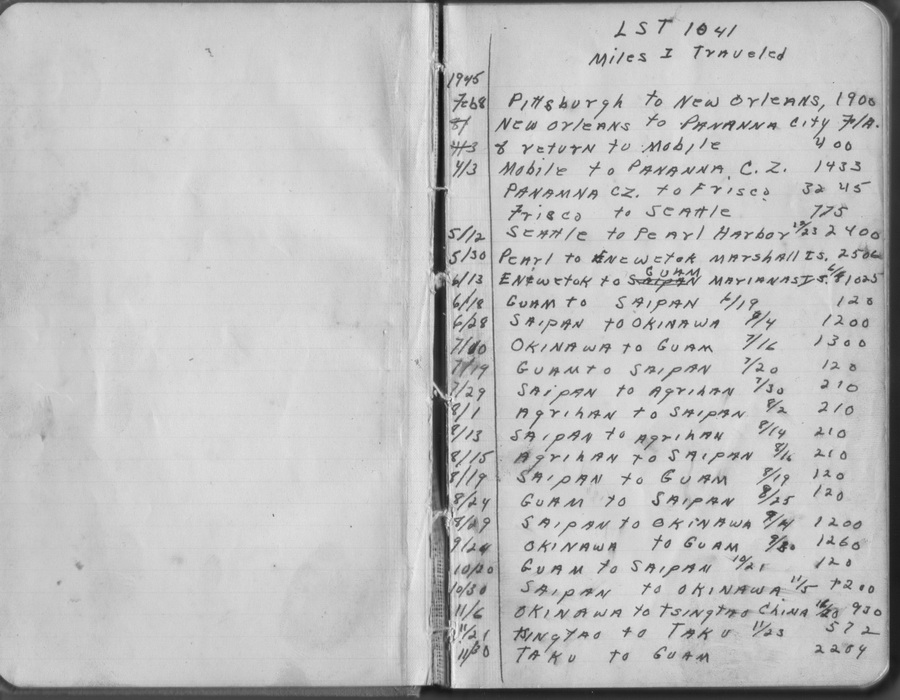 LST 1041
Miles I Traveled
1945
Feb 8 Pittsburgh to New Orleans, 1900
New Orleans to PANANNA City Fla.
& return to Mobile 400
4/3 Mobile to PANANNA, C.Z. 1433
PANAMNA CZ. to Frisco 3245
Frisco to Seattle 775
5/12 Seattle to Pearl Harbor 2400
5/30 Pearl to Enewetok Marshall Is. 2506
6/13 Enewetok to Saipan Guam Marianas Is. 1025
6/18 Guam to Saipan 6/19 120
6/28 Saipan to Okinawa 1200
7/10 Okinawa to Guam 7/16 1300
7/19 Guam to Saipan 7/20 120
7/29 Saipan to Agrihan 7/30 210
8/1 Agrihan to Saipan 8/2 210
8/13 Saipan to Agrihan 8/14 210
8/15 Agrihan to Saipan 8/16 210
8/19 Saipan to Guam 8/19 120
8/24 Guam to Saipan 8/25 120
8/29 Saipan to Okinawa 9/4 1200
9/24 Okinawa to Guam 9/30 1260
10/20 Guam to Saipan 10/21 120
10/30 Saipan to Okinawa 11/5 1200
11/6 Okinawa to Tsingtao China 930
11/21 Tsingtao to Taku 11/23 572
11/30 Taku to Guam 2204